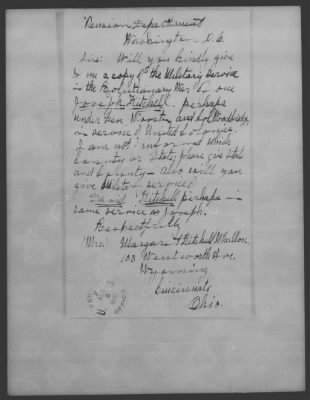 Pension Department
Washington D.C.
Sirs: Will you kindly give
to me a copy of the Military service
in the Revolutionary War of one
Joseph Fitchell. perhaps
under Gen. Wooster and Col Woodbridge
in service of United Colonies.
I am not informed which
County or State; please give state
and County – Also will you
give Military service
David Fitchell perhaps in
same service as Joseph.
Respectfully
(Mrs.) Margaret Fitchell Whallon
103 Wentworth Ave.
Wyoming
Cincinnati
Ohio.